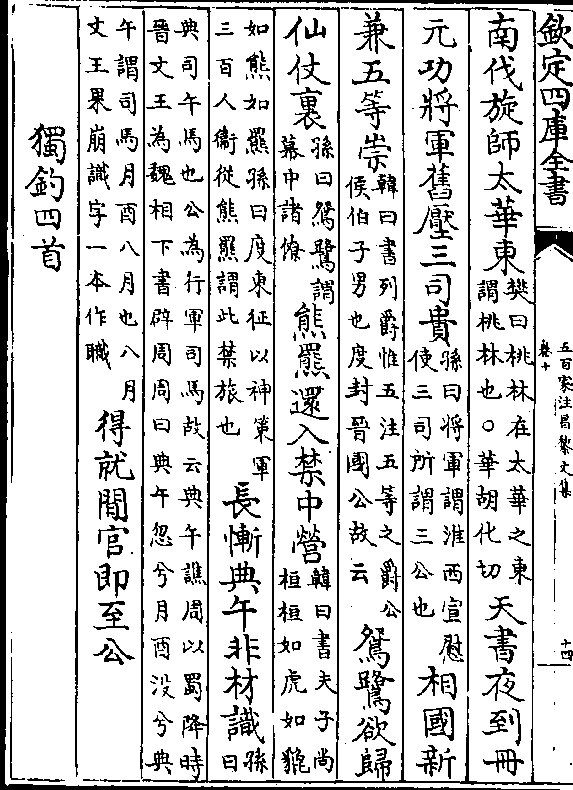 欽定四庫全書
五百家注昌黎文集
卷十
十四
南伐旋師太華東樊曰桃林在太華之東謂桃林也○華胡化切天書夜到冊
元功將軍舊壓三司貴孫曰將軍謂淮西宣慰使三司所謂三公也相國新
兼五等崇韓曰書列爵惟五注五等之爵公侯伯子男也度封晉國公故云鴛鷺欲歸
仙仗裏孫曰鴛鷺謂幕中諸僚熊羆還入禁中營韓曰書夫子尚桓桓如虎如貔
如熊如羆孫曰度東征以神策軍三百人衞從熊羆謂此禁旅也長慚典午非材識孫曰
典司午馬也公為行軍司馬故云典午譙周以蜀降時晉文王為魏相下書辟周周曰典午忽兮月酉没兮典
午謂司馬月酉八月也八月文王果崩識字一本作職得就閒官即至公
獨釣四首